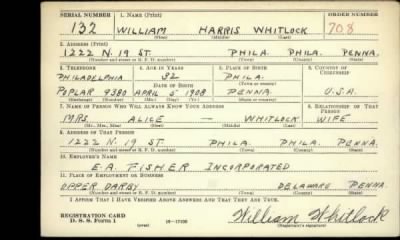 SERIAL NUMBER 1. NAME (Print) ORDER NUMBER
132 WILLIAM HARRIS WHITLOCK 708
(First) (Middle) (Last)
2. ADDRESS (Print)
1222 N. 19 ST. PHILA. PHILA. PENNA.
(Number and street or R. F. D. number) (Town) (County) (State)
3. TELEPHONE 4. AGE IN YEARS 5. PLACE OF BIRTH 6. COUNTRY OF CITIZENSHIP
PHILADELPHIA 32 PHILA.
DATE OF BIRTH
POPLAR 9380 APRIL 5 1908 PENNA. U.S.A.
(Exchange) (Number) (Mo.) (Day) (Yr.) (State or country)
7. NAME OF PERSON WHO WILL ALWAYS KNOW YOUR ADDRESS 8. RELATIONSHIP OF THAT PERSON
MRS. ALICE - WHITLOCK WIFE
(Mr., Mrs., Miss) (First) (Middle) (Last)
9. ADDRESS OF THAT PERSON
1222 N. 19 ST. PHILA. PHILA. PENNA.
(Number and street or R. F. D. number) (Town) (County) (State)
10. EMPLOYER'S NAME
E.A. FISHER INCORPORATED
11. PLACE OF EMPLOYMENT OR BUSINESS
UPPER DARBY DELAWARE PENNA.
(Number and street or R. F. D. number) (Town) (County) (State)
I AFFIRM THAT I HAVE VERIFIED ABOVE ANSWERS AND THAT THEY ARE TRUE.
REGISTRATION CARD
D. S. S. Form 1 (over) 16-17105 William Whitlock
(Registrant's signature)